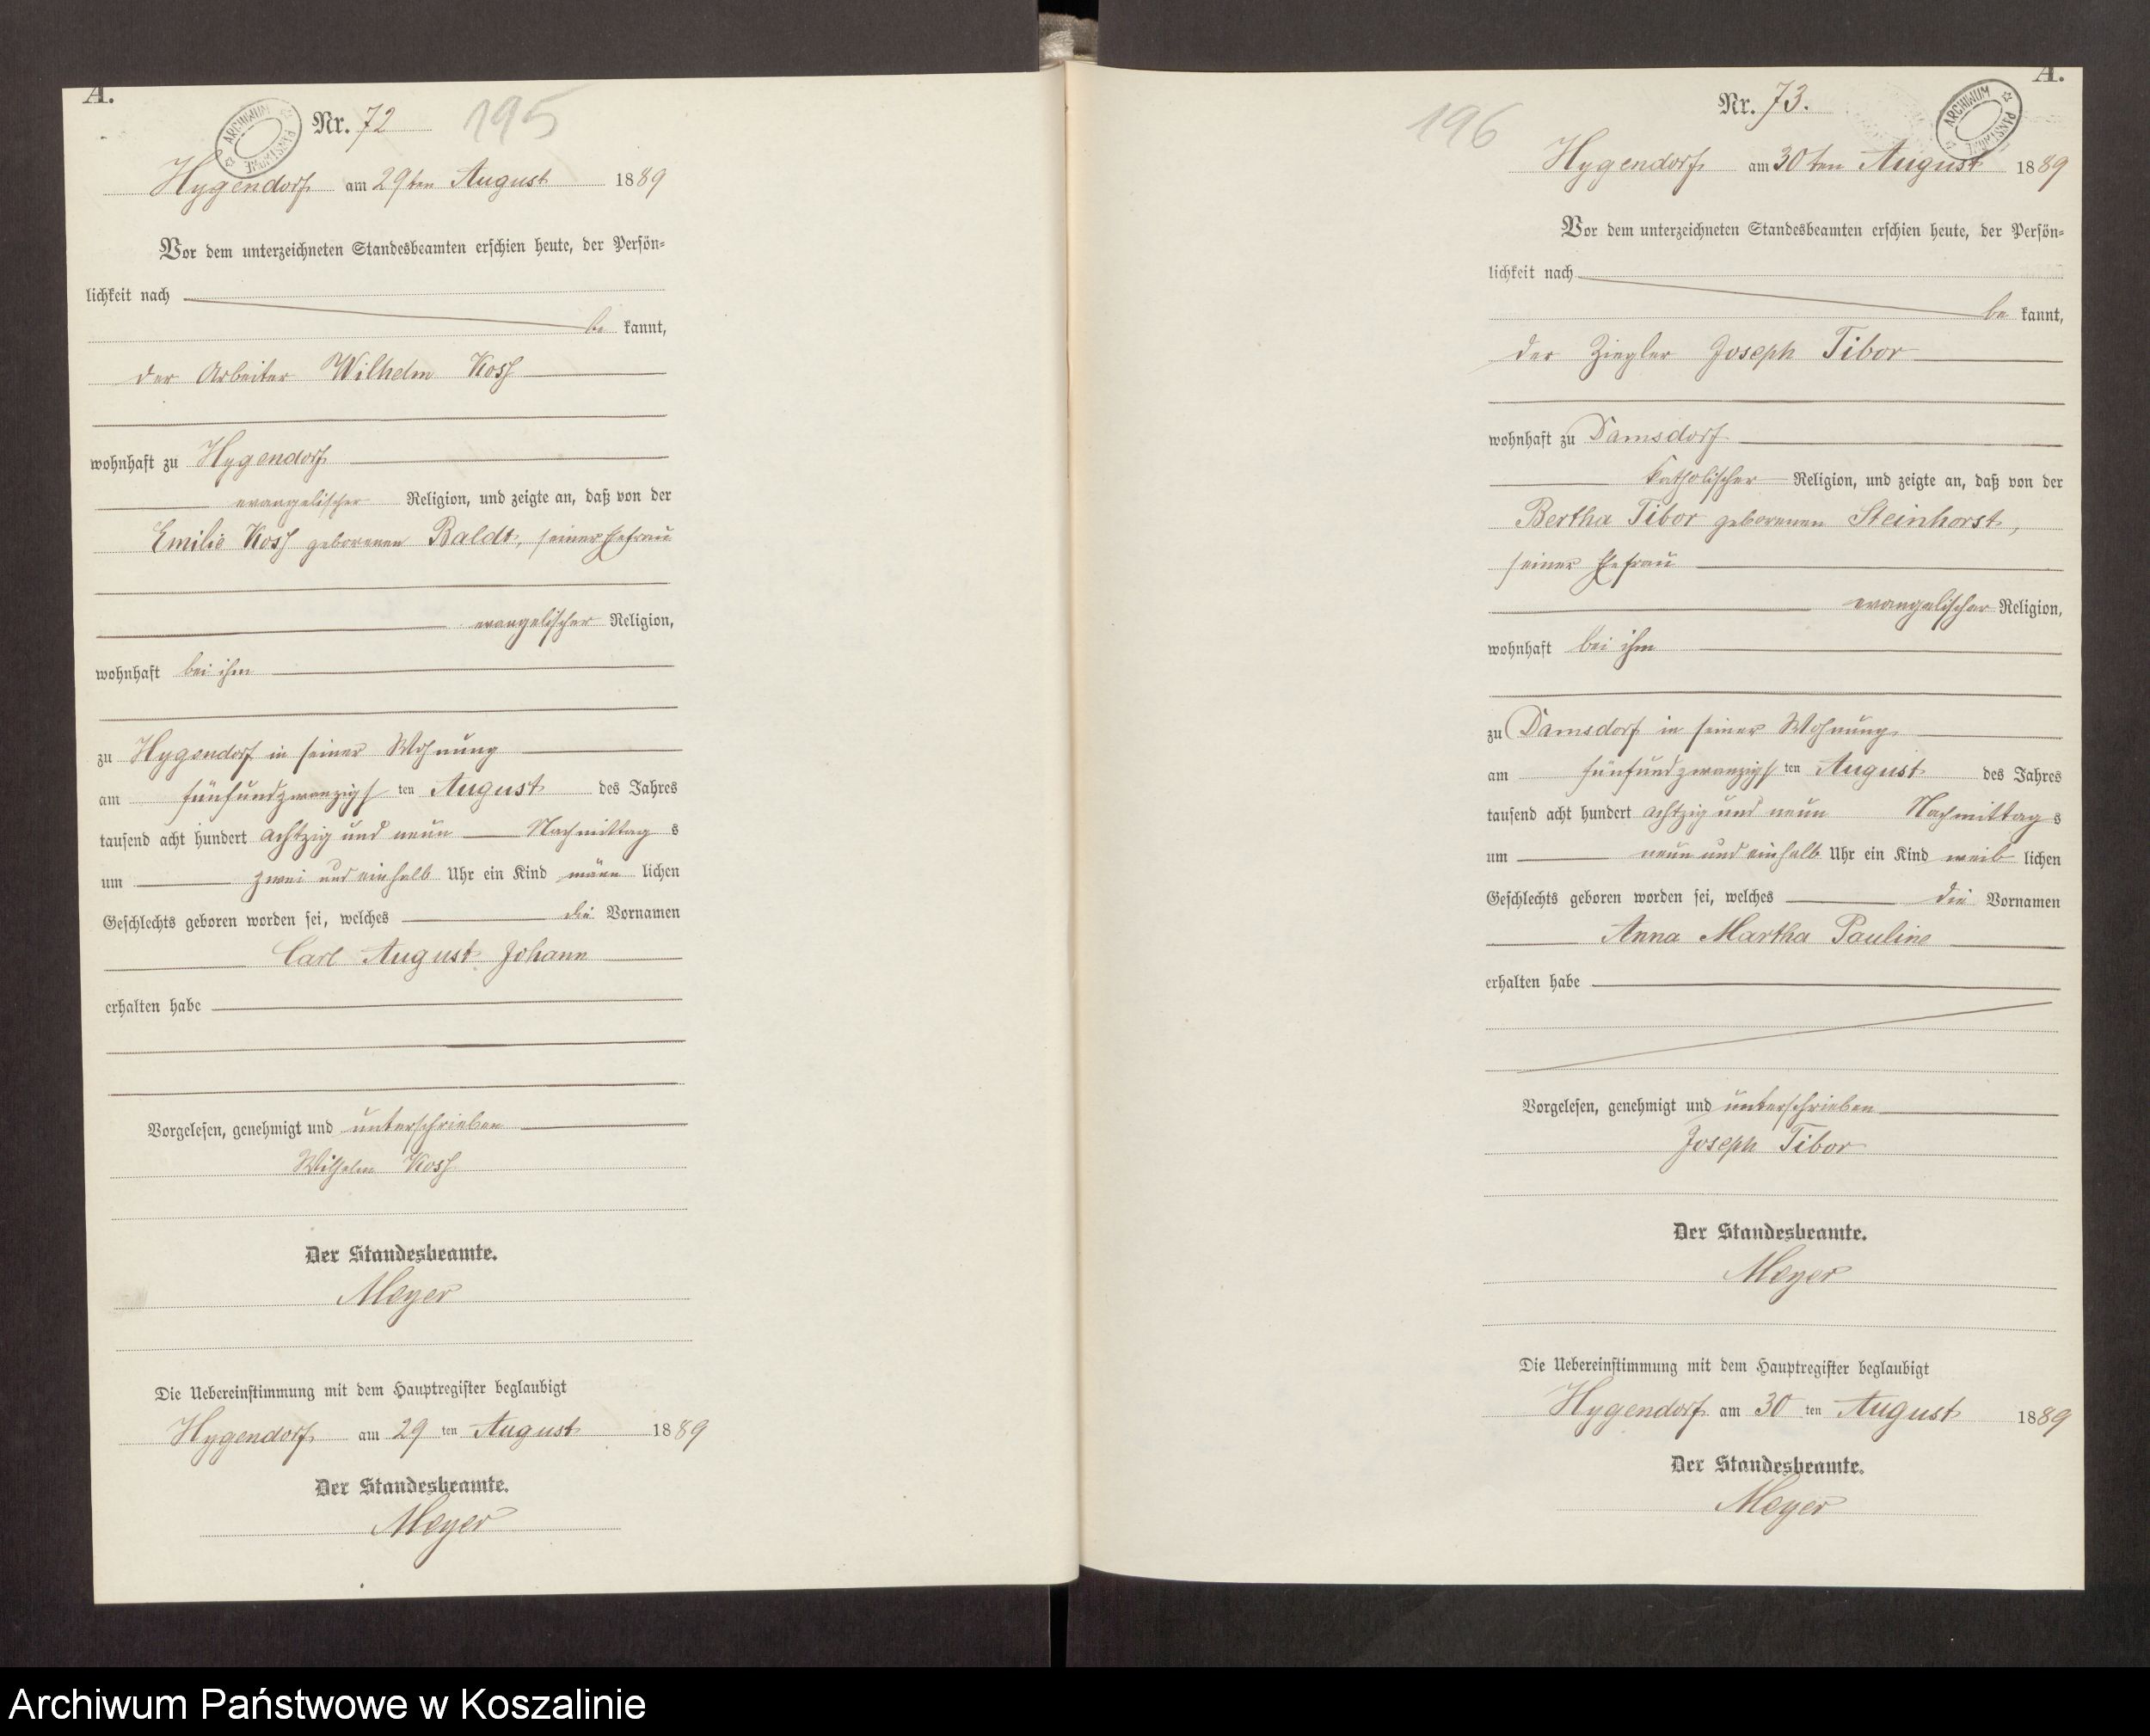 A.
ARCHIWUM PAŃSTWOWE
Nr. 72
195
Hygendorf am 29ten August 1889
Vor dem unterzeichneten Standesbeamten erschien heute, der Persön-
lichkeit nach
be kannt,
der Arbeiter Wilhelm Koss
wohnhaft zu Hygendorf
evangelischer Religion, und zeigte an, daß von der
Emilie Koss geborenen Baldt, seiner Ehefrau
evangelischer Religion,
wohnhaft bei ihm
zu Hygendorf in seiner Wohnung
am fünfundzwanzigsten August des Jahres
tausend acht hundert achtzig und neun Nachmittags
um zwei und einhalb Uhr ein Kind männlichen
Geschlechts geboren worden sei, welches die Vornamen
Carl August Johann
erhalten habe
Vorgelesen, genehmigt und unterschrieben
Wilhelm Koss
Der Standesbeamte.
Meyer
Die Uebereinstimmung mit dem Hauptregister beglaubigt
Hygendorf am 29 ten August 1889
Der Standesbeamte.
Meyer
A.
196
Nr. 73.
ARCHIWUM PAŃSTWOWE
Hygendorf am 30ten August 1889
Vor dem unterzeichneten Standesbeamten erschien heute, der Persön-
lichkeit nach
be kannt,
der Ziegler Joseph Tibor
wohnhaft zu Damsdorf
katholischer Religion, und zeigte an, daß von der
Bertha Tibor geborenen Steinhorst,
seiner Ehefrau
evangelischer Religion,
wohnhaft bei ihm
zu Damsdorf in seiner Wohnung
am fünfundzwanzigsten August des Jahres
tausend acht hundert achtzig und neun Nachmittags
um neun und einhalb Uhr ein Kind weiblichen
Geschlechts geboren worden sei, welches die Vornamen
Anna Martha Pauline
erhalten habe
Vorgelesen, genehmigt und unterschrieben
Joseph Tibor
Der Standesbeamte.
Meyer
Die Uebereinstimmung mit dem Hauptregister beglaubigt
Hygendorf am 30 ten August 1889
Der Standesbeamte.
Meyer
Archiwum Państwowe w Koszalinie